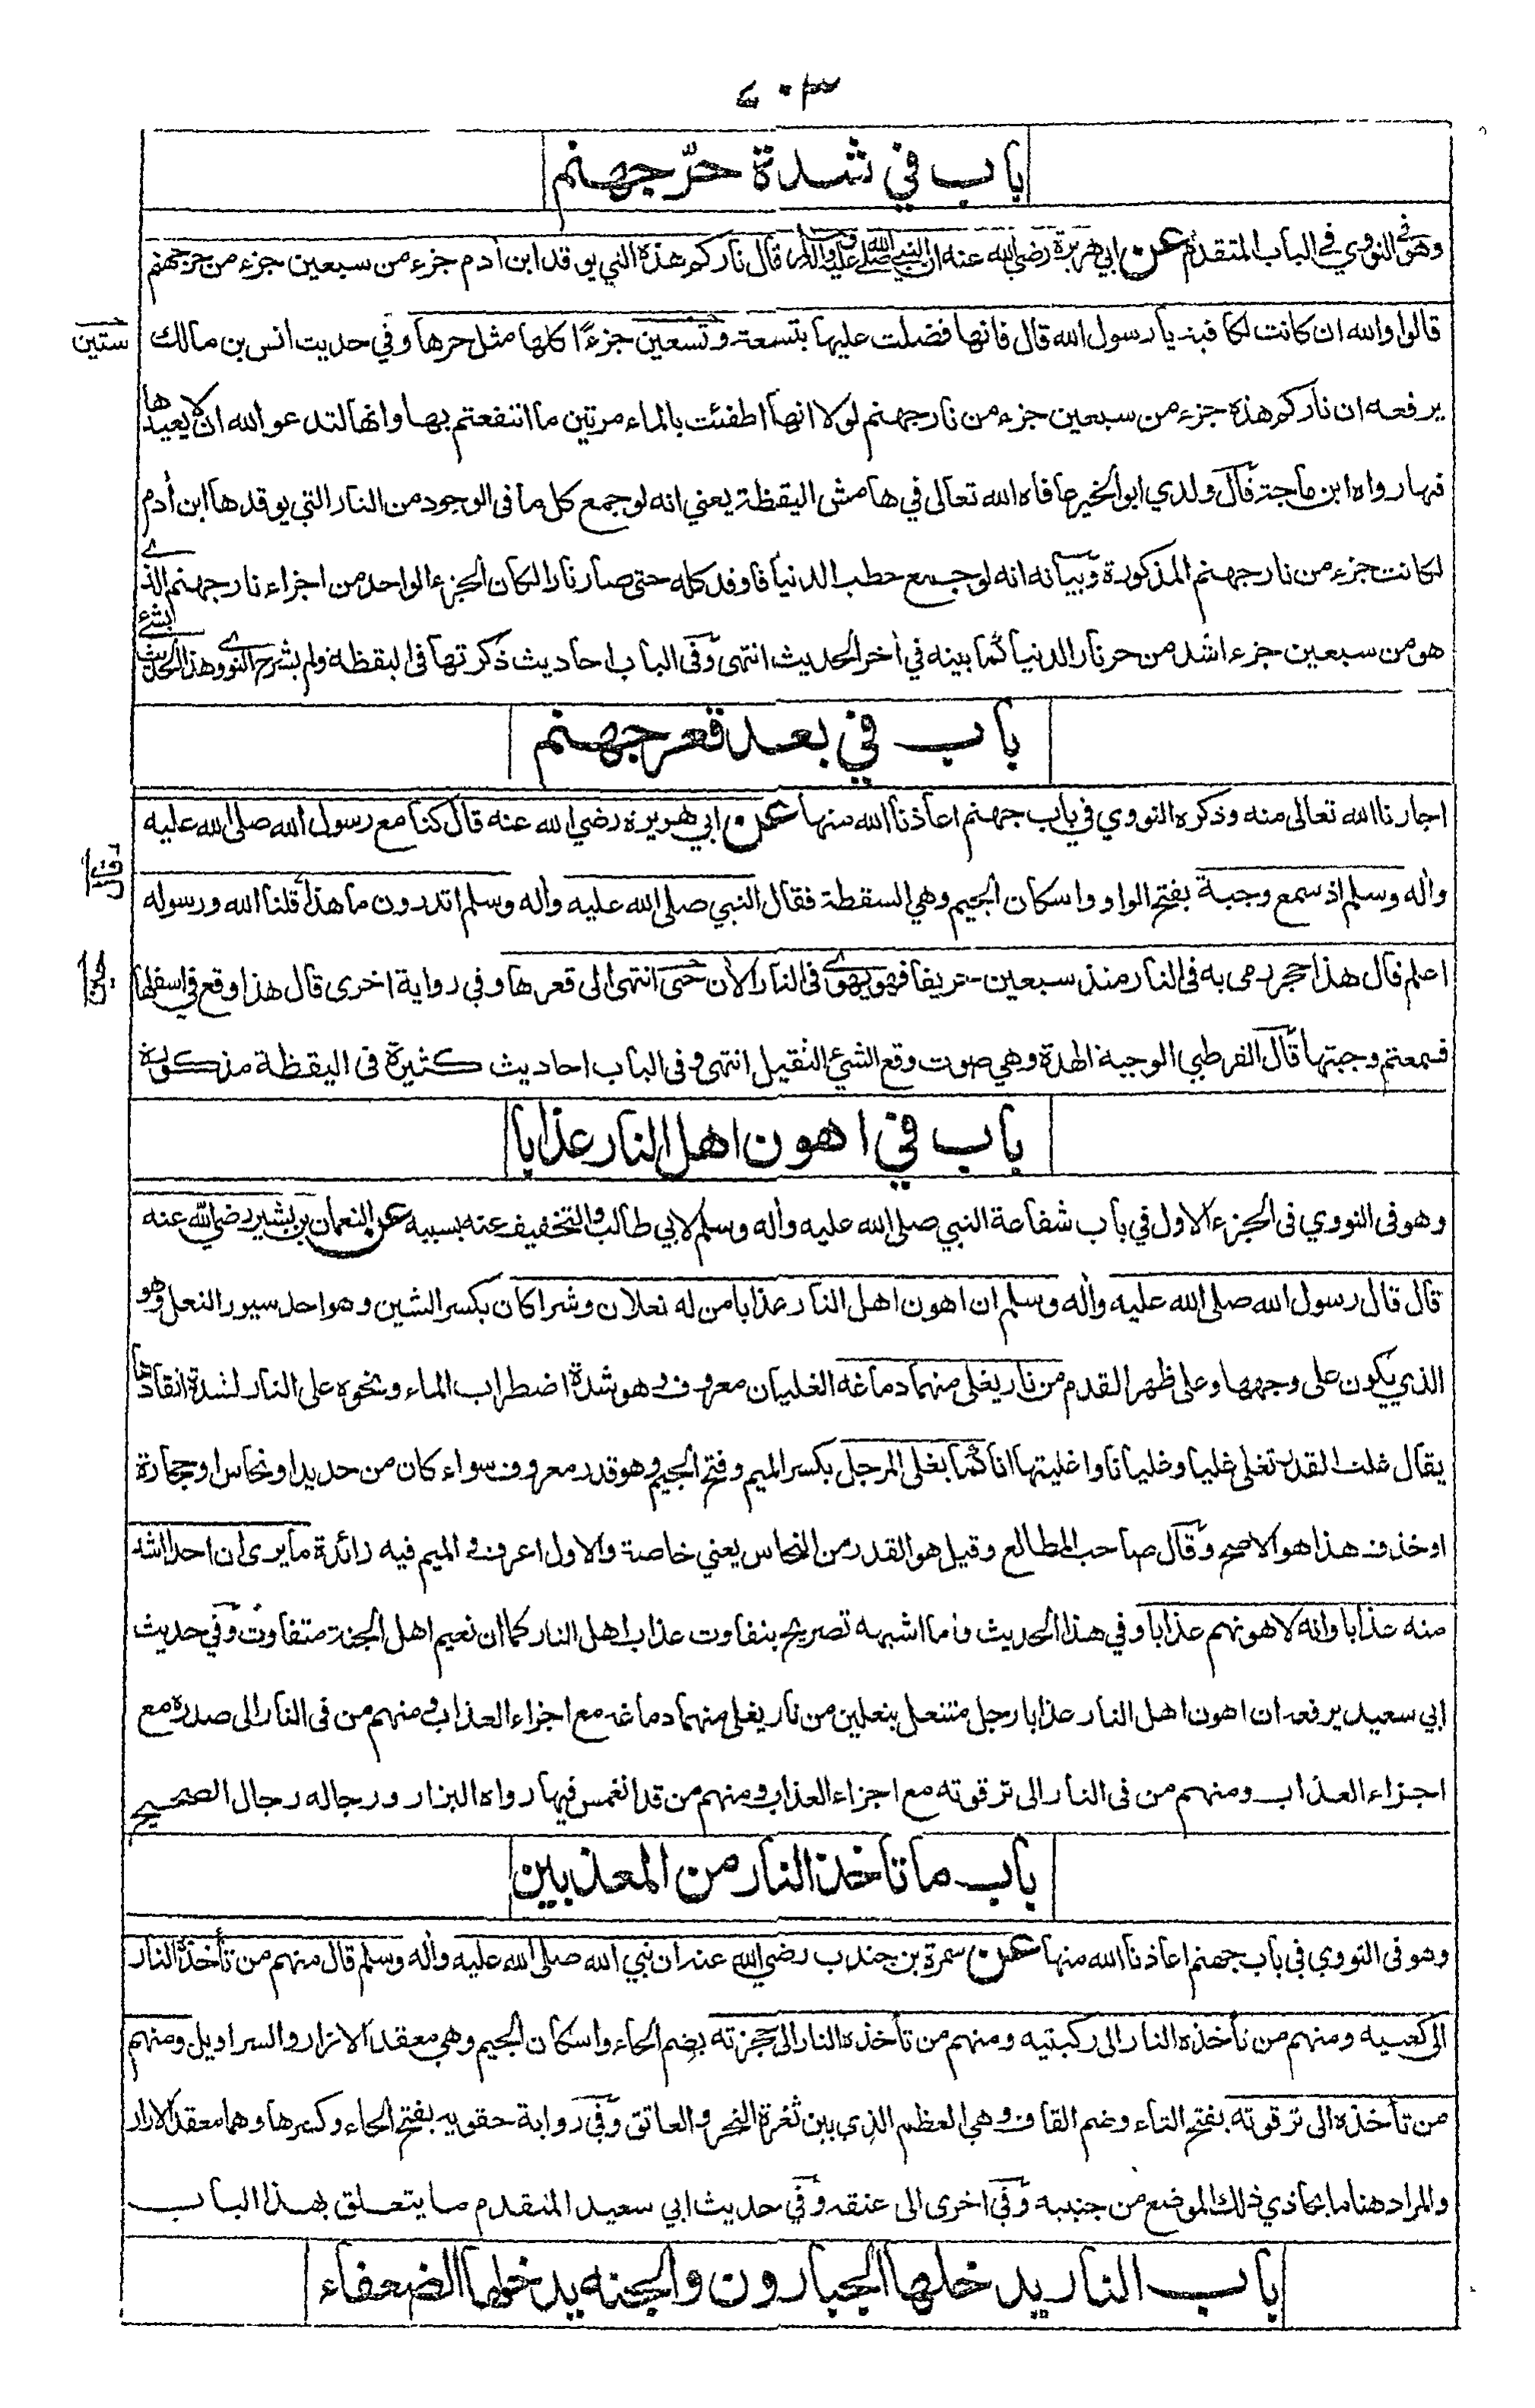 ٤٠٣
باب في شدة حرّ جهنم
وهو في النووي في الباب المتقدم عن ابي هريرة رضي الله عنه ان النبي صلى الله عليه واله وسلم قال ناركم هذه التي يوقد ابن ادم جزء من سبعين جزء من حر جهنم
قالوا والله ان كانت لكافية يا رسول الله قال فانها فضلت عليها بتسعة وتسعين جزءًا كلها مثل حرها وفي حديث انس بن مالك
ستين
يرفعه ان ناركم هذه جزء من سبعين جزء من نار جهنم لولا انها اطفئت بالماء مرتين ما انتفعتم بها وانها لتدعو الله ان لا يعيدها
فيها رواه ابن ماجة قال ولدي ابو الخير عافاه الله تعالى في هامش اليقظة يعني انه لو جمع كل ما فى الوجود من النار التي يوقدها ابن أدم
لكانت جزء من نار جهنم المذكورة وبيانه انه لو جمع حطب الدنيا فاوقد كله حتى صار نارا لكان الجزء الواحد من اجزاء نار جهنم الذي
هو من سبعين جزء اشد من حر نار الدنيا كما بينه في أخر الحديث انتهى وفى الباب احاديث ذكرتها فى اليقظة ولم يشرح النووي هذا الحديث بشئ
باب في بعد قعر جهنم
اجارنا الله تعالى منه وذكره النووي في باب جهنم اعاذنا الله منها عن ابي هريرة رضي الله عنه قال كنا مع رسول الله صلى الله عليه
واله وسلم اذ سمع وجبة بفتح الواو واسكان الجيم وهي السقطة فقال النبي صلى الله عليه واله وسلم اتدرون ما هذا قلنا الله ورسوله
قال
اعلم قال هذا حجر رمى به فى النار منذ سبعين خريفا فهو يهوي فى النار الأن حتى انتهى الى قعرها وفي رواية اخرى قال هذا وقع في اسفلها
حين
فسمعتم وجبتها قال القرطبي الوجبة الهدة وهي صوت وقع الشيئ الثقيل انتهى وفى الباب احاديث كثيرة فى اليقظة مذكورة
باب في اهون اهل النار عذابا
وهو فى النووي فى الجزء الاول في باب شفاعة النبي صلى الله عليه واله وسلم لابي طالب والتخفيف عنه بسببه عن النعمان بن بشير رضي الله عنه
قال قال رسول الله صلى الله عليه واله وسلم ان اهون اهل النار عذابا من له نعلان وشراكان بكسر الشين وهو احد سيور النعل وهو
الذي يكون على وجهها وعلى ظهر القدم من نار يغلى منهما دماغه الغليان معروف وهو شدة اضطراب الماء ونحوه على النار لشدة اتقادها
يقال غلت القدر تغلى غليا وغليانا واغليتها انا كما يغلى المرجل بكسر الميم وفتح الجيم وهو قدر معروف سواء كان من حديد او نحاس او حجارة
او خذف هذا هو الاصح وقال صاحب المطالع وقيل هو القدر من النحاس يعني خاصة والاول اعرف و الميم فيه زائدة ما يرى ان احدا اشد
منه عذابا وانه لاهونهم عذابا وفي هذا الحديث وما اشبهه تصريح بتفاوت عذاب اهل النار كما ان نعيم اهل الجنة متفاوت وفي حديث
ابي سعيد يرفعه ان اهون اهل النار عذابا رجل متنعل بنعلين من نار يغلى منهما دماغه مع اجزاء العذاب ومنهم من فى النار الى صدره مع
اجزاء العذاب ومنهم من فى النار الى ترقوته مع اجزاء العذاب ومنهم من قد انغمس فيها رواه البزار ورجاله رجال الصحيح
باب ما تاخذ النار من المعذبين
وهو فى النووي في باب جهنم اعاذنا الله منها عن سمرة بن جندب رضي الله عنه ان نبي الله صلى الله عليه واله وسلم قال منهم من تأخذه النار
الى كعبيه ومنهم من تأخذه النار الى ركبتيه ومنهم من تأخذه النار الى حجزته بضم الحاء واسكان الجيم وهي معقد الازار والسراويل ومنهم
من تأخذه الى ترقوته بفتح التاء وضم القاف وهي العظم الذي بين ثغرة النحر و العاتق وفي رواية حقويه بفتح الحاء وكسرها وهما معقد الازار
والمراد هنا ما يحاذي ذلك الموضع من جنبيه وفي اخرى الى عنقه وفي حديث ابي سعيد المتقدم ما يتعلق بهذا الباب
باب النار يدخلها الجبارون والجنه يدخلها الضعفاء